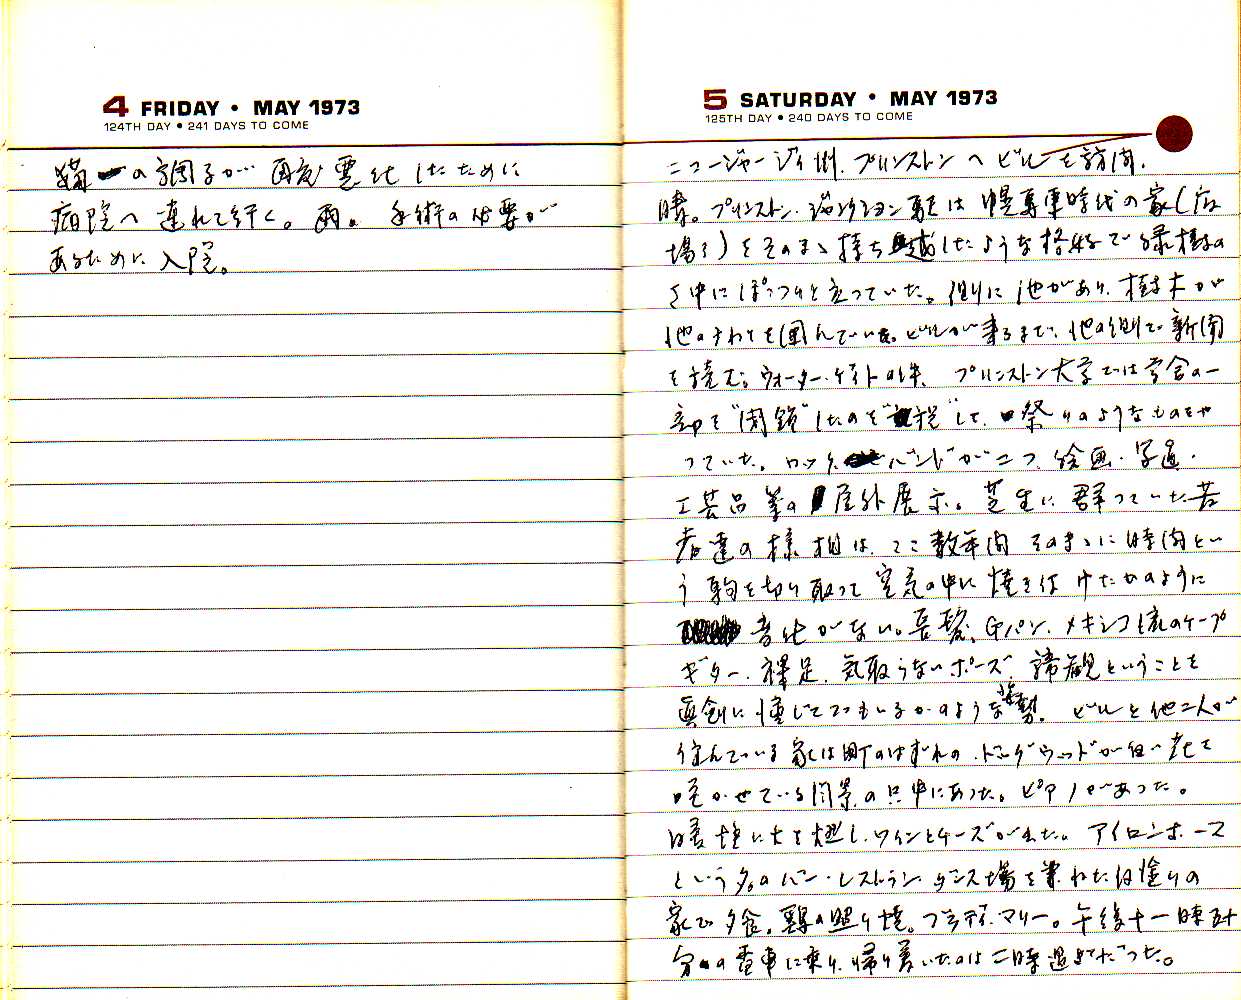 4 FRIDAY • MAY 1973
124TH DAY • 241 DAYS TO COME
猫の調子が再度悪化したために
病院へ連れて行く。雨。手術の必要が
あるために入院。
5 SATURDAY • MAY 1973
125TH DAY • 240 DAYS TO COME
ニュージャージィ州、プリンストンへビルを訪問。
晴。プリンストン・ジャンクション駅は幌馬車時代の家(
場)をそのまゝ持ち越したような格好で緑樹の
中にぽっつりと立っていた。側に池があり、樹木が
池のまわりを囲んでいた。ビルが来るまで、池の側で新聞
を読む。ウォーター・ゲイトの件、プリンストン大学では学舎の一
部を"閉鎖"したのを"祝"して、祭りのようなものをや
っていた。ロック・バンドが二つ、絵画・写真・
工芸品等の屋外展示。芝生に群っていた若
者達の様相は、ここ数年間そのまゝに時間とい
う駒を切り取って空気の中に焼き付けたかのように
変化がない。長髪、Gパン、メキシコ流のケープ
ギター、裸足、気取らないポーズ、諦観ということを
真剣に信じてでもいるかのような姿勢。ビルと他二人が
住んでいる家は町のはずれの、ドッグウッドが白い花を
咲かせている風景の只中にあった。ピアノがあった。
暖炉に火を燃し、ワインとチーズが出た。アイロンホース
という名のバー・レストラン、ダンス場を兼ねた白塗りの
家で夕食。鶏の照り焼。ブラディ・マリー。午後十一時五十
分の電車に乗り、帰り着いたのは二時過ぎだった。